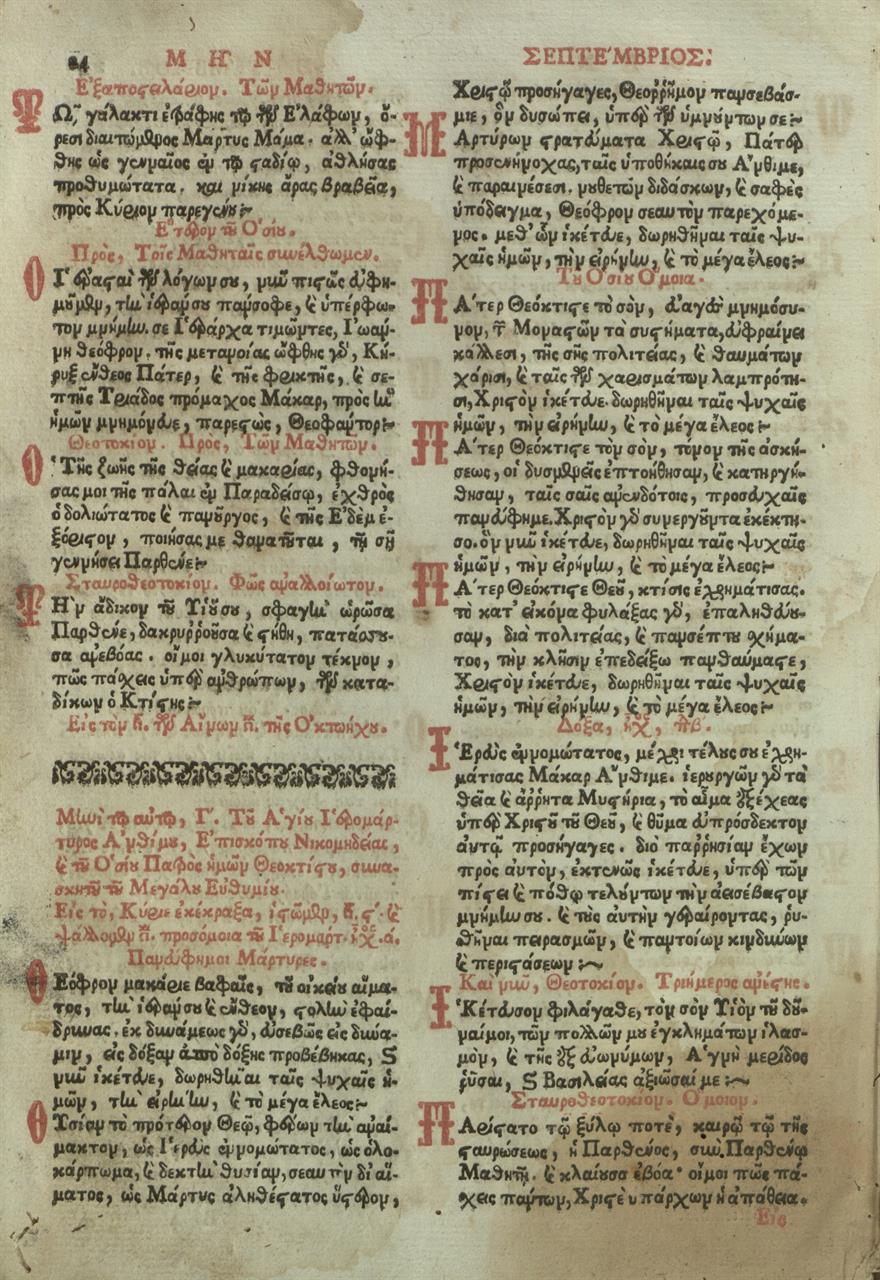 24 ΜΗΝ ΣΕΠΤΕΜΒΡΙΟΣ:
Ἐξαποστειλάριον. Τῶν Μαθητῶν.
Τῷ γάλακτι ἐτράφης τῷ τῶν Ἐλάφων, ὄ-
ρεσι διαιτώμενος Μάρτυς Μάμα. ἀλλ' ὤφ-
θης ὡς γενναῖος ἐν τῷ σταδίῳ, ἀθλήσας
προθυμώτατα. καὶ νίκης ἄρας βραβεῖα,
πρὸς Κύριον
Ἕτερον τοῦ Ὁσίου.
Πρὸς, Τοῖς Μαθηταῖς συνέλθωμεν.
Οἱ ἐρασταὶ τῶν λόγων σου, νῦν πιστῶς εὐφη-
μοῦμεν, τὴν ἱεράν σου πάνσοφε, καὶ ὑπέρφω-
τον μνήμην. σὲ Ἱεράρχα τιμῶντες, Ἰωάν-
νη θεόφρον. τῆς μετανοίας ὤφθης γὰρ, Κή-
ρυξ ἔνθεος Πάτερ, καὶ τῆς φρικτῆς, καὶ σε-
πτῆς Τριάδος πρόμαχος Μάκαρ, πρὸς ἣν
ἡμῶν μνημόνευε, παρεστὼς, Θεοφάντορ:
Θεοτοκίον. Πρὸς, Τῶν Μαθητῶν.
Ὁ Τῆς ζωῆς τῆς θείας καὶ μακαρίας, φθονή-
σας μοι τῆς πάλαι ἐν Παραδείσῳ, ἐχθρὸς
ὁ δολιώτατος καὶ πανοῦργος, καὶ τῆς Ἐδὲμ ἐ-
ξόριστον, ποιήσας με θανατοῦται, τῇ σῇ
γεννήσει Παρθένε:
Σταυροθεοτοκίον. Φῶς ἀναλλοίωτον.
Τὴν ἄδικον τοῦ Υἱοῦ σου, σφαγὴν ὁρῶσα
Παρθένε, δακρυρροοῦσα καὶ στήθη, πατάσσου-
σα ἀνεβόας. οἴμοι γλυκύτατον τέκνον,
πῶς πάσχεις ὑπὲρ ἀνθρώπων, τῶν κατα-
δίκων ὁ Κτίστης:
Εἰς τὸν στ. τῶν Αἴνων στ. τῆς Ὀκτωήχου.
Μηνὶ τῷ αὐτῷ, Γ. Τοῦ Ἁγίου Ἱερομάρ-
τυρος Ἀνθίμου, Ἐπισκόπου Νικομηδείας,
καὶ τοῦ Ὁσίου Πατρὸς ἡμῶν Θεοκτίστου, συνα-
σκητοῦ τοῦ Μεγάλου Εὐθυμίου.
Εἰς τὸ, Κύριε ἐκέκραξα, ἱστῶμεν, στ. ϛ. καὶ
ψάλλομεν στ. προσόμοια τοῦ Ἱερομάρτ. ἦχ. δ.
Πανεύφημοι Μάρτυρες.
Θεόφρον μακάριε βαφαῖς, τοῦ οἰκείου αἵμα-
τος, τὴν ἱεράν σου καὶ ἔνθεον, στολὴν ἐφαί-
δρυνας. ἐκ δυνάμεως γὰρ, εὐσεβῶς εἰς δύνα-
μιν, εἰς δόξαν ἀπὸ δόξης προβέβηκας, καὶ
νῦν ἱκέτευε, δωρηθῆναι ταῖς ψυχαῖς ἡ-
μῶν, τὴν εἰρήνην, καὶ τὸ μέγα ἔλεος:
Θυσίαν τὸ πρότερον Θεῷ, φέρων τὴν ἀναί-
μακτον, ὡς Ἱερεὺς ἐννομώτατος, ὡς ὁλο-
κάρπωμα, καὶ δεκτὴν θυσίαν, σεαυτὸν δι' αἵ-
ματος, ὡς Μάρτυς ἀληθέστατος ὕστερον,
Χριστῷ προσήγαγες, Θεορρῆμον πανσεβάσ-
μιε, ὃν δυσώπει, ὑπὲρ τῶν ὑμνούντων σε:
Μαρτύρων στρατεύματα Χριστῷ, Πάτερ
προσενήνοχας, ταῖς ὑποθήκαις σου Ἄνθιμε,
καὶ παραινέσεσι. νουθετῶν διδάσκων, καὶ σαφὲς
ὑπόδειγμα, Θεόφρον σεαυτὸν παρεχόμε-
νος. μεθ' ὧν ἱκέτευε, δωρηθῆναι ταῖς ψυ-
χαῖς ἡμῶν, τὴν εἰρήνην, καὶ τὸ μέγα ἔλεος:
Τοῦ Ὁσίου Ὅμοια.
Πάτερ Θεόκτιστε τὸ σὸν, εὐαγὲς μνημόσυ-
νον, τῶν Μοναστῶν τὰ συστήματα, εὐφραίνει
κάλλεσι, τῆς σῆς πολιτείας, καὶ θαυμάτων
χάρισι, καὶ ταῖς τῶν χαρισμάτων λαμπρότη-
σι, Χριστὸν ἱκέτευε. δωρηθῆναι ταῖς ψυχαῖς
ἡμῶν, τὴν εἰρήνην, καὶ τὸ μέγα ἔλεος:
Πάτερ Θεόκτιστε τὸν σὸν, τόνον τῆς ἀσκή-
σεως, οἱ δυσμενεῖς ἐπτοήθησαν, καὶ κατηργή-
θησαν, ταῖς σαῖς ἀνενδότοις, προσευχαῖς
πανεύφημε. Χριστὸν γὰρ συνεργοῦντα ἐκέκτη-
σο. ὃν νῦν ἱκέτευε, δωρηθῆναι ταῖς ψυχαῖς
ἡμῶν, τὴν εἰρήνην, καὶ τὸ μέγα ἔλεος:
Πάτερ Θεόκτιστε Θεοῦ, κτίσις ἐχρημάτισας.
τὸ κατ' εἰκόνα φυλάξας γὰρ, ἐπαληθεύου-
σαν, διὰ πολιτείας, καὶ πανσέπτου σχήμα-
τος, τὴν κλῆσιν ἐπεδείξω πανθαύμαστε,
Χριστὸν ἱκέτευε, δωρηθῆναι ταῖς ψυχαῖς
ἡμῶν, τὴν εἰρήνην, καὶ τὸ μέγα ἔλεος:
Δόξα, ἦχ, πλ. β.
Ἱερεὺς ἐννομώτατος, μέχρι τέλους σου ἐχρη-
μάτισας Μάκαρ Ἄνθιμε. ἱερουργῶν γὰρ τὰ
θεῖα καὶ ἄρρητα Μυστήρια, τὸ αἷμα ἐξέχεας
ὑπὲρ Χριστοῦ τοῦ Θεοῦ, καὶ θῦμα εὐπρόσδεκτον
αὐτῷ προσήγαγες. διὸ παρρησίαν ἔχων
πρὸς αὐτὸν, ἐκτενῶς ἱκέτευε, ὑπὲρ τῶν
πίστει καὶ πόθῳ τελούντων τὴν ἀεισέβαστον
μνήμην σου. καὶ τοὺς αὐτὴν γεραίροντας, ῥυ-
σθῆναι πειρασμῶν, καὶ παντοίων κινδύνων
καὶ περιστάσεων:
Καὶ νῦν, Θεοτοκίον. Τριήμερος ἀνέστης.
Ἱκέτευσον φιλάγαθε, τὸν σὸν Υἱὸν τοῦ δοῦ-
ναί μοι, τῶν πολλῶν μου ἐγκλημάτων ἱλασ-
μὸν, καὶ τῆς ἐξ εὐωνύμων, Ἁγνὴ μερίδος
ῥῦσαι, καὶ Βασιλείας ἀξιῶσαί με:
Σταυροθεοτοκίον. Ὅμοιον.
Παρίστατο τῷ ξύλῳ ποτὲ, καιρῷ τῷ τῆς
σταυρώσεως, ἡ Παρθένος, σὺν Παρθένῳ
Μαθητῇ. καὶ κλαίουσα ἐβόα· οἴμοι πῶς πά-
σχεις πάντων, Χριστὲ ὑπάρχων ἡ ἀπάθεια.
Εἰς